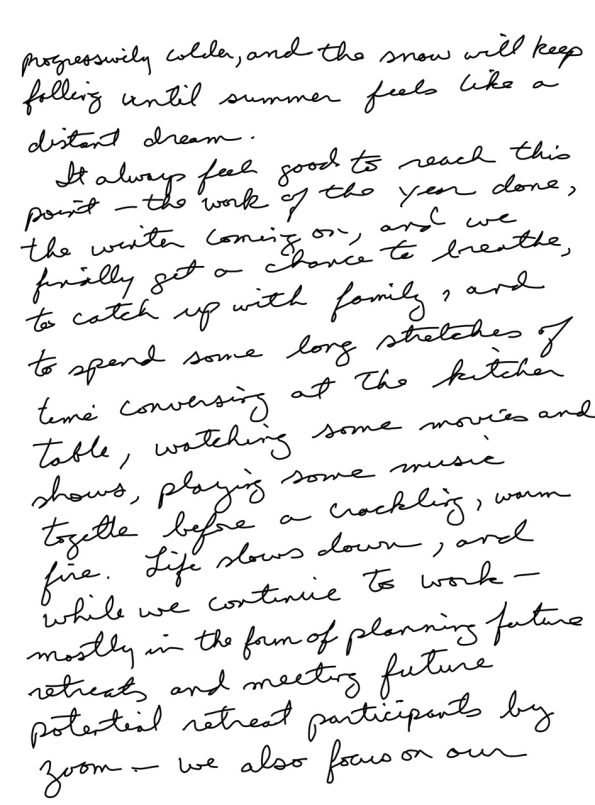 progressively colder, and the snow will keep
falling until summer feels like a
distant dream.
It always feels good to reach this
point – the work of the year done,
the winter coming on, and we
finally get a chance to breathe,
to catch up with family, and
to spend some long stretches of
time conversing at the kitchen
table, watching some movies and
shows, playing some music
together before a crackling, warm
fire. Life slows down, and
while we continue to work –
mostly in the form of planning future
retreats and meeting future
potential retreat participants by
zoom – we also focus on our